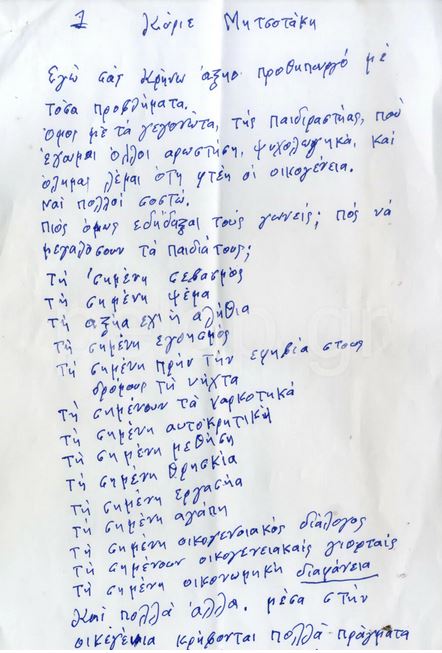 1 Κύριε Μητσοτάκη
Εγώ σας κρήνω άξηο προθηπουργό μέ
τόσα προβλήματα.
όμος μέ τά γεγονότα, τής παιδιραστήας, πού
έχομαι όλλοι αρωστήση, ψυχολωγηκά, καί
όλημαι λέμαι οτη φτέη οι οικογένεια.
ναί πολλοί σοστώ.
πιός όμως εδήδαξαι τούς γωνείς; πός νά
μεγαλόσουν τά παιδιά τους;
τή σημένη σεβασμος
τή σημένη ψέμα
τή αξήα έχι ή αλήθια
τή σημένη εγοησμός
τή σημένη πρήν τήν εφηβία στους
δρόμους τή νήχτα
τή σημένουν τά ναρκοτικά
τή σημένη αυτοκρητική
τή σημένη μεθήση
τή σημένη θρησκία
τή σημένη εργασήα
τή σημένη αγάπη
τή σημένη οικογενειακός διάλογος
τή σημένουν οικογενειακαίς γιορταίς
τή σημένη οικονωμηκή διαφάνεια
Καί πολλά άλλα. μέσα στήν
οικέγένια κρήβονται πολλά πράγματα